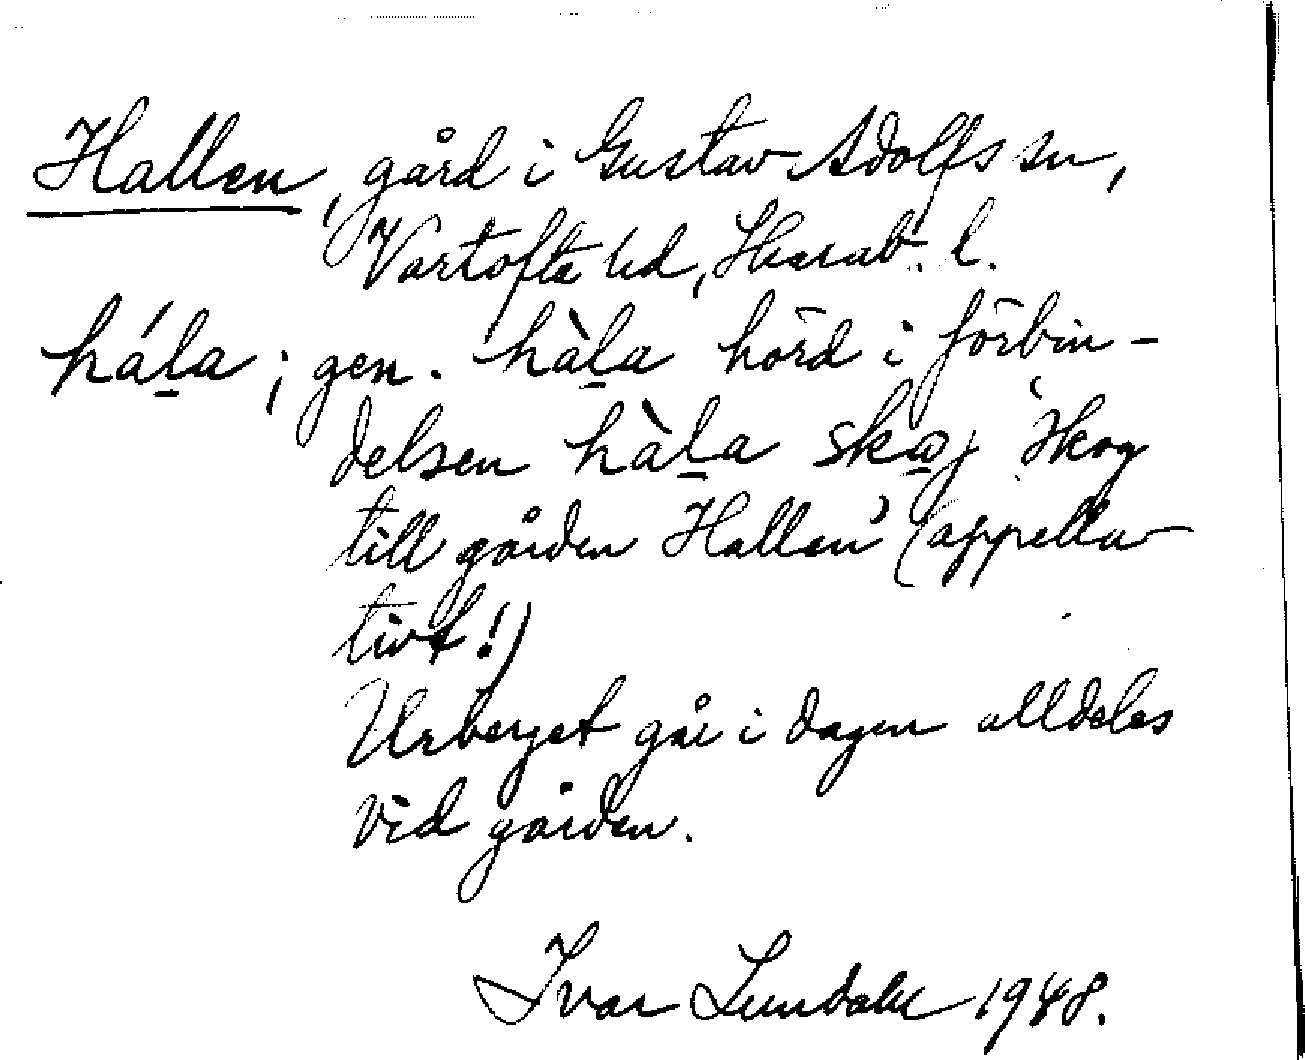 Hallen, gård i Gustav Adolfs sn,
Vartofta hd, Skarab. l.
hál̠a; gen. hàl̠a hörd i förbin-
delsen hàl̠a ska̠j 'skog
till gården Hallen' (appella-
tivt!)
Urberget går i dagen alldeles
vid gården.
Ivar Lundahl 1948.